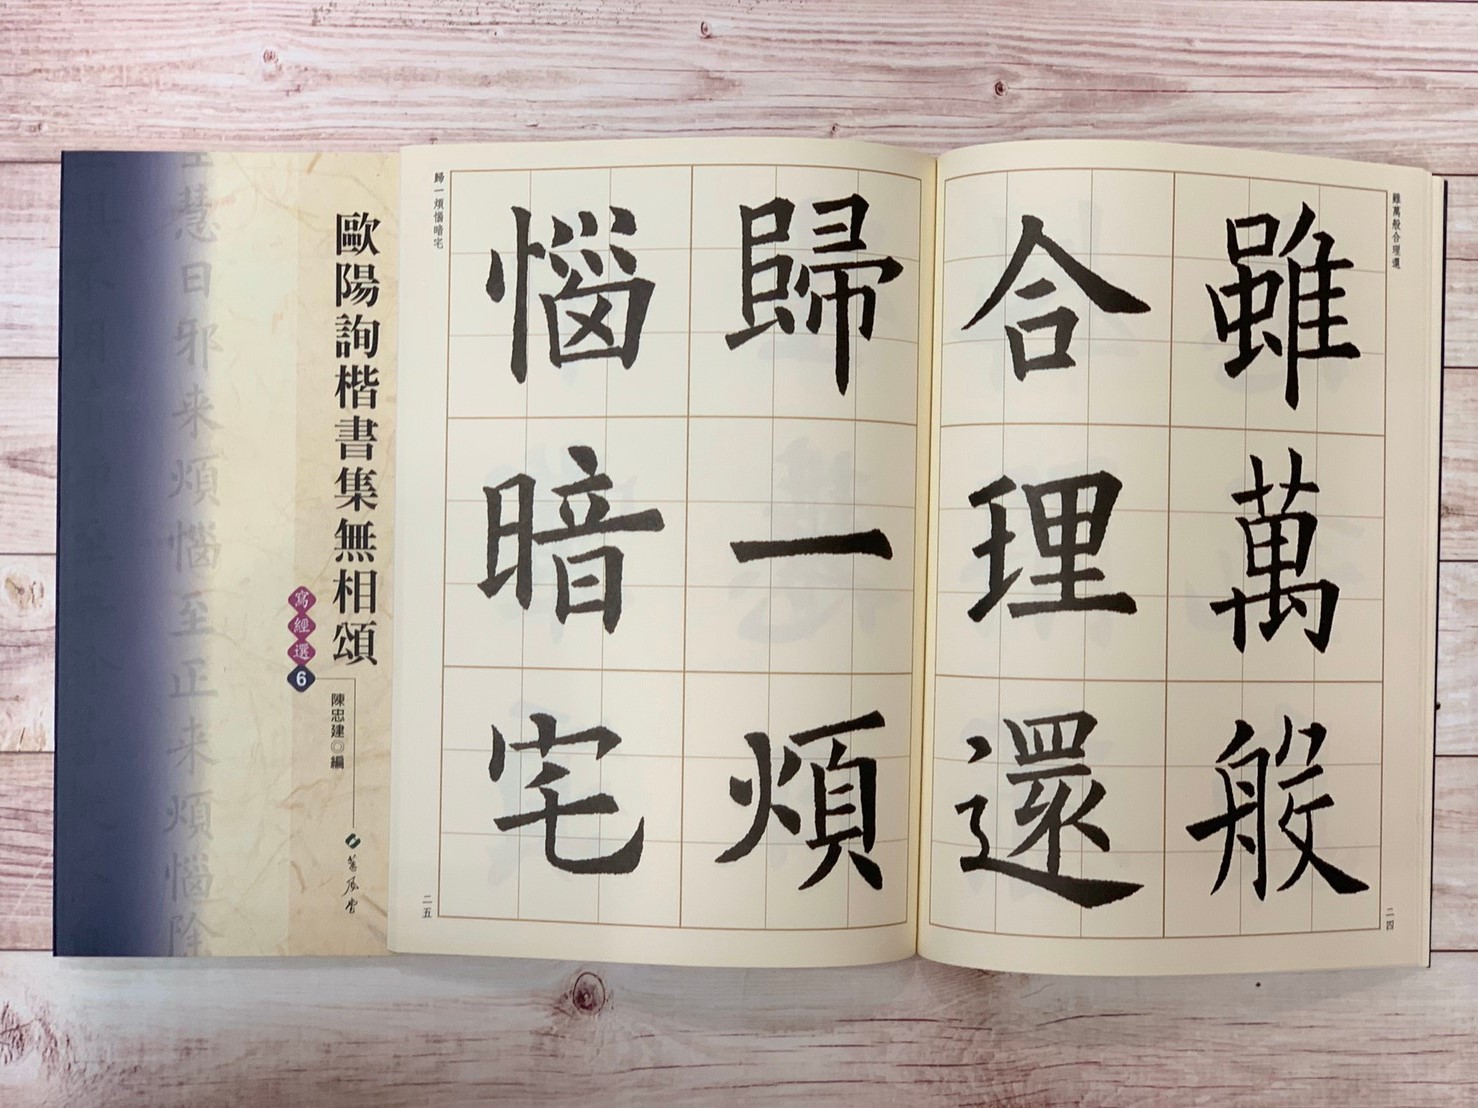 歐陽詢楷書集無相頌
寫經選6
陳忠建◎編
慧日邪来煩惱至正来煩惱除
雖萬般合理還
雖萬般
合理還
二四
歸一煩惱暗宅
歸一煩
惱暗宅
二五